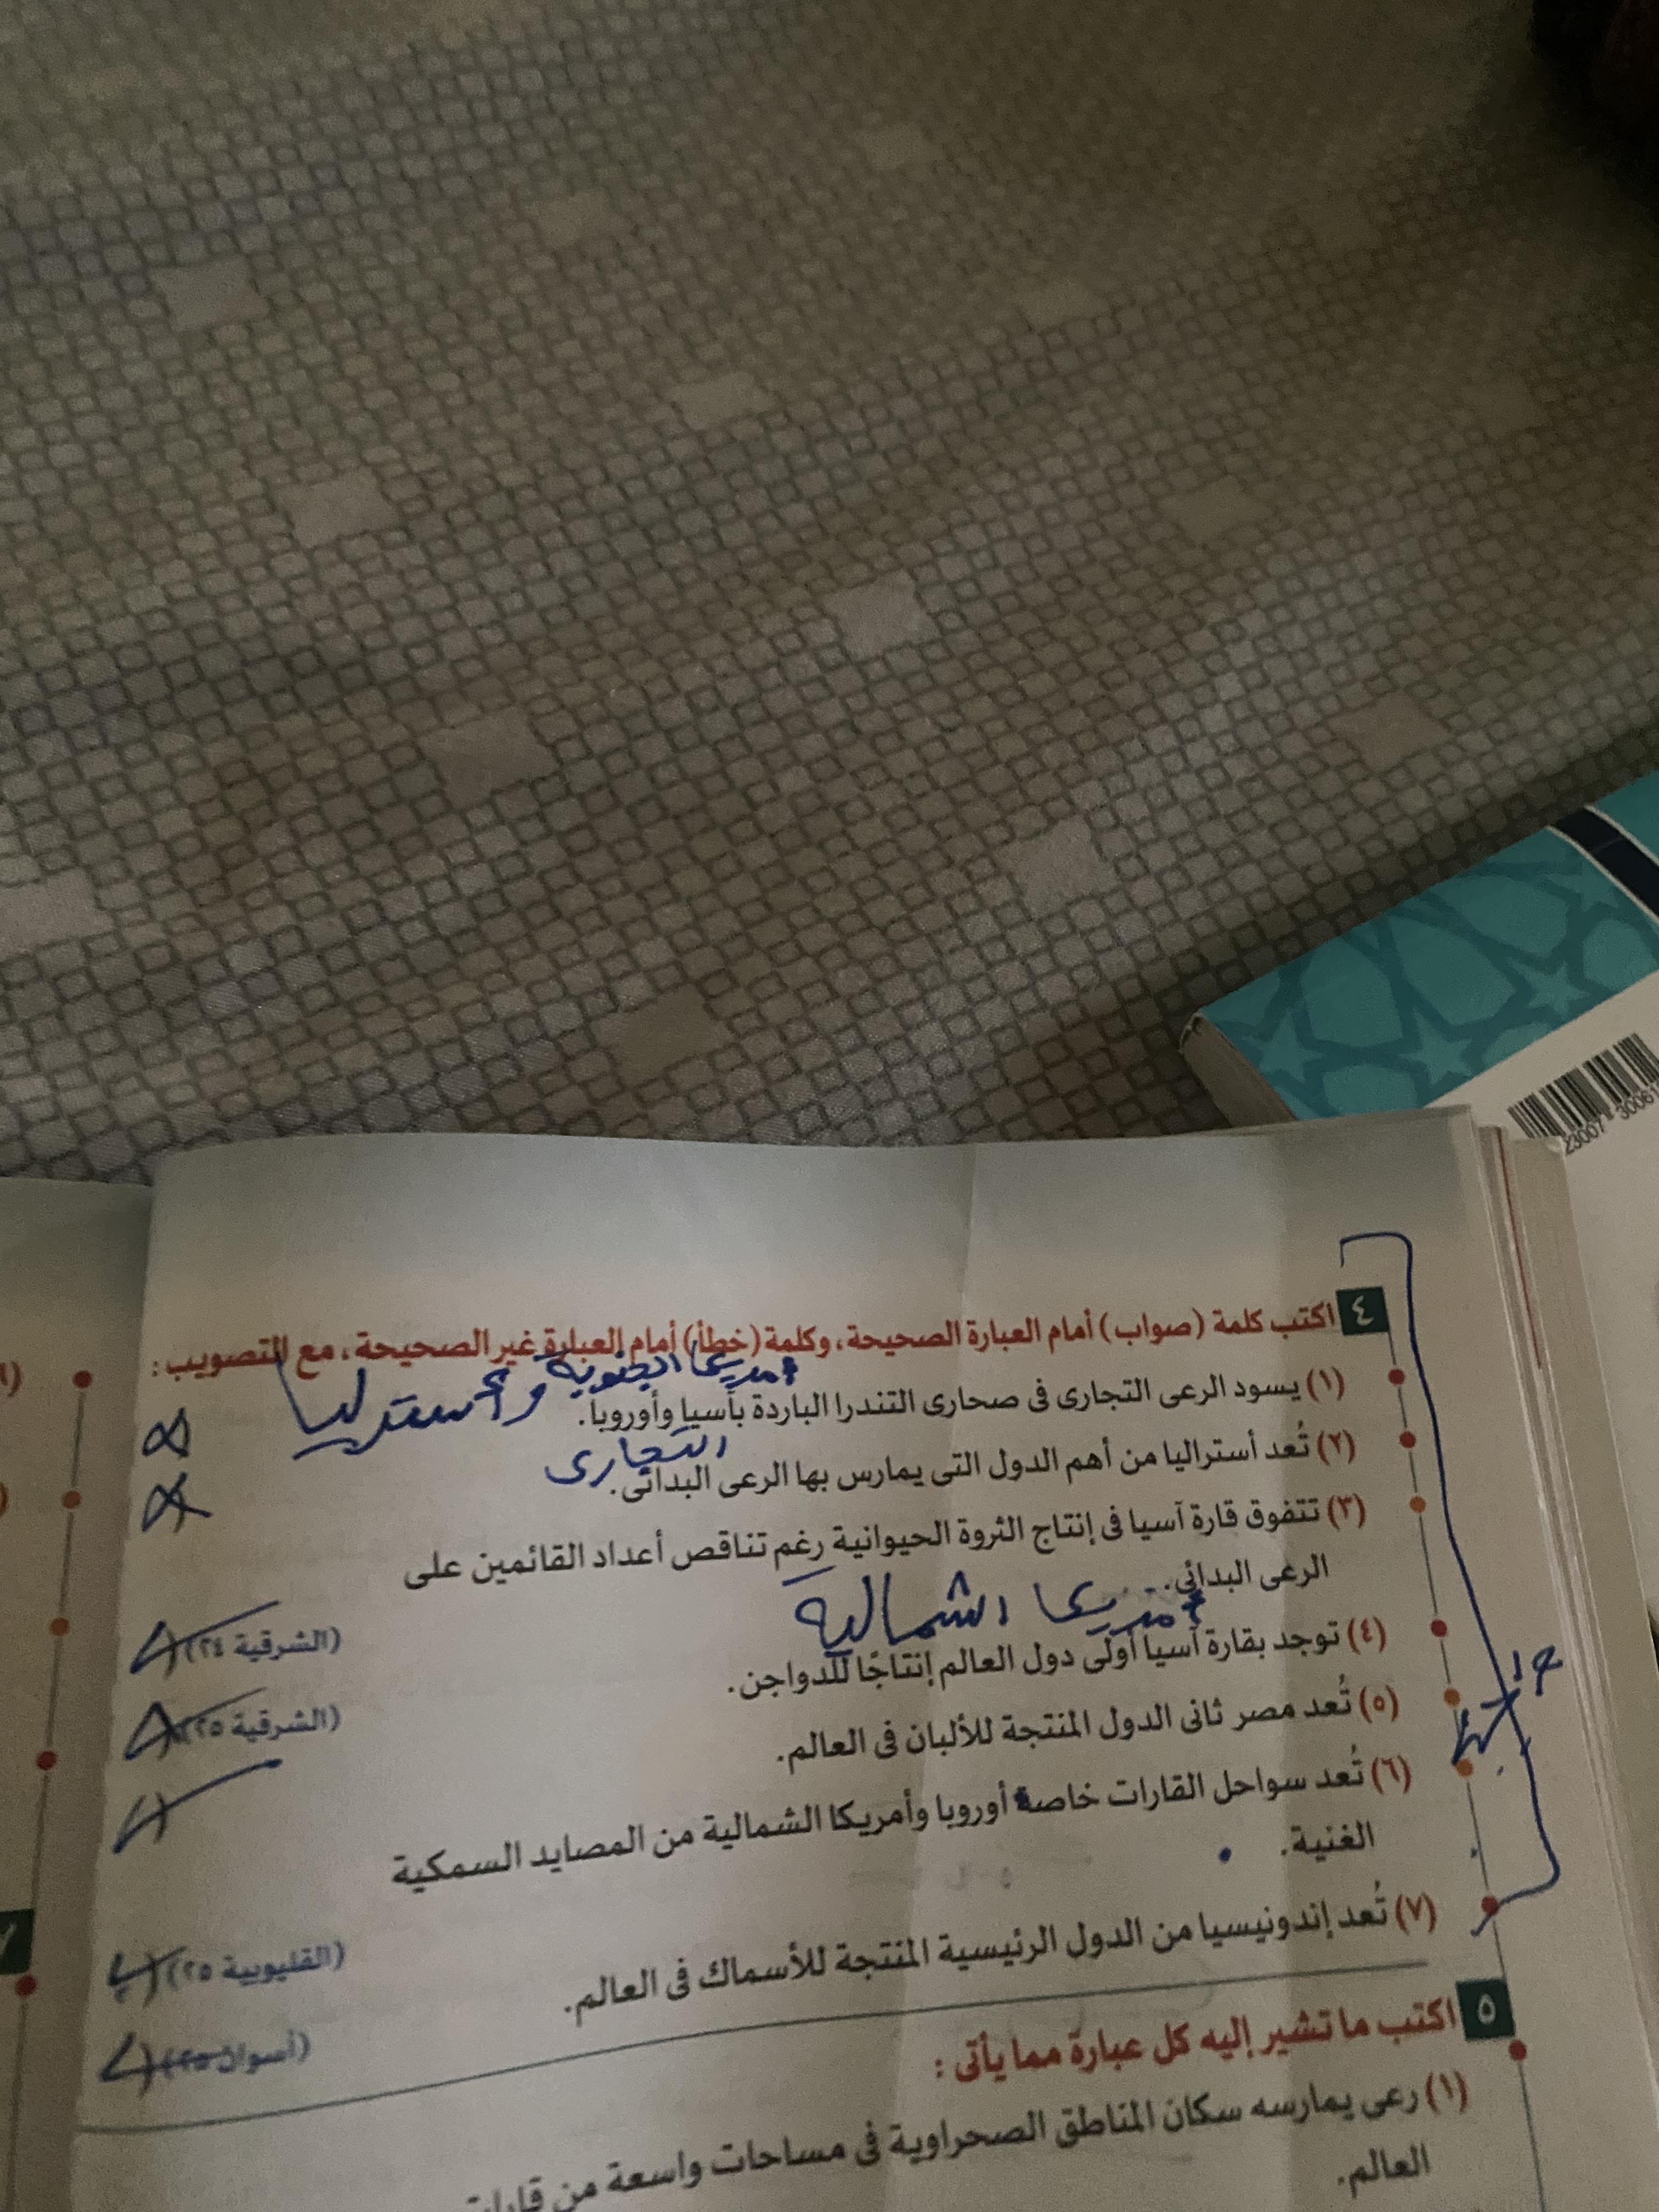 ٤ اكتب كلمة (صواب) أمام العبارة الصحيحة، وكلمة (خطأ) أمام العبارة غير الصحيحة، مع التصويب:
أمريكا الجنوبية وأستراليا
(١) يسود الرعى التجارى فى صحارى التندرا الباردة بآسيا وأوروبا.
التجارى
(٢) تُعد أستراليا من أهم الدول التى يمارس بها الرعى البدائى.
(٣) تتفوق قارة آسيا فى إنتاج الثروة الحيوانية رغم تناقص أعداد القائمين على
الرعى البدائى. (الشرقية ٢٤)
أمريكا الشمالية
(٤) توجد بقارة آسيا أولى دول العالم إنتاجًا للدواجن. (الشرقية ٢٥)
(٥) تُعد مصر ثانى الدول المنتجة للألبان فى العالم.
(٦) تُعد سواحل القارات خاصة أوروبا وأمريكا الشمالية من المصايد السمكية
الغنية. (القليوبية ٢٥)
(٧) تُعد إندونيسيا من الدول الرئيسية المنتجة للأسماك فى العالم. (أسوان ٢٥)
٥ اكتب ما تشير إليه كل عبارة مما يأتى:
(١) رعى يمارسه سكان المناطق الصحراوية فى مساحات واسعة من قارات
العالم.